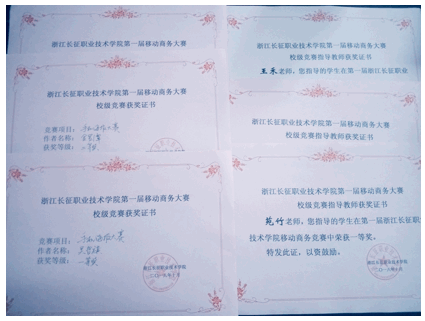 浙江长征职业技术学院第一届移动商务大赛
浙江长征职业技术学院第一届移动商务大赛
校级竞赛获奖证书
竞赛项目：
作者名称：
获奖等级：
浙江长征职业技术学院第一届移动商务大赛
校级竞赛获奖证书
竞赛项目：
作者名称：
获奖等级：一等奖
浙江长征职业技术学院
浙江长征职业技术学院第一届移动商务大赛
校级竞赛指导教师获奖证书
王禾老师，您指导的学生在第一届浙江长征职业
浙江长征职业技术学院第一届移动商务大赛
校级竞赛指导教师获奖证书
浙江长征职业技术学院第一届移动商务大赛
校级竞赛指导教师获奖证书
苑竹老师，您指导的学生在第一届浙江长征职
技术学院移动商务竞赛中荣获一等奖。
特发此证，以资鼓励。
浙江长征职业技术学院